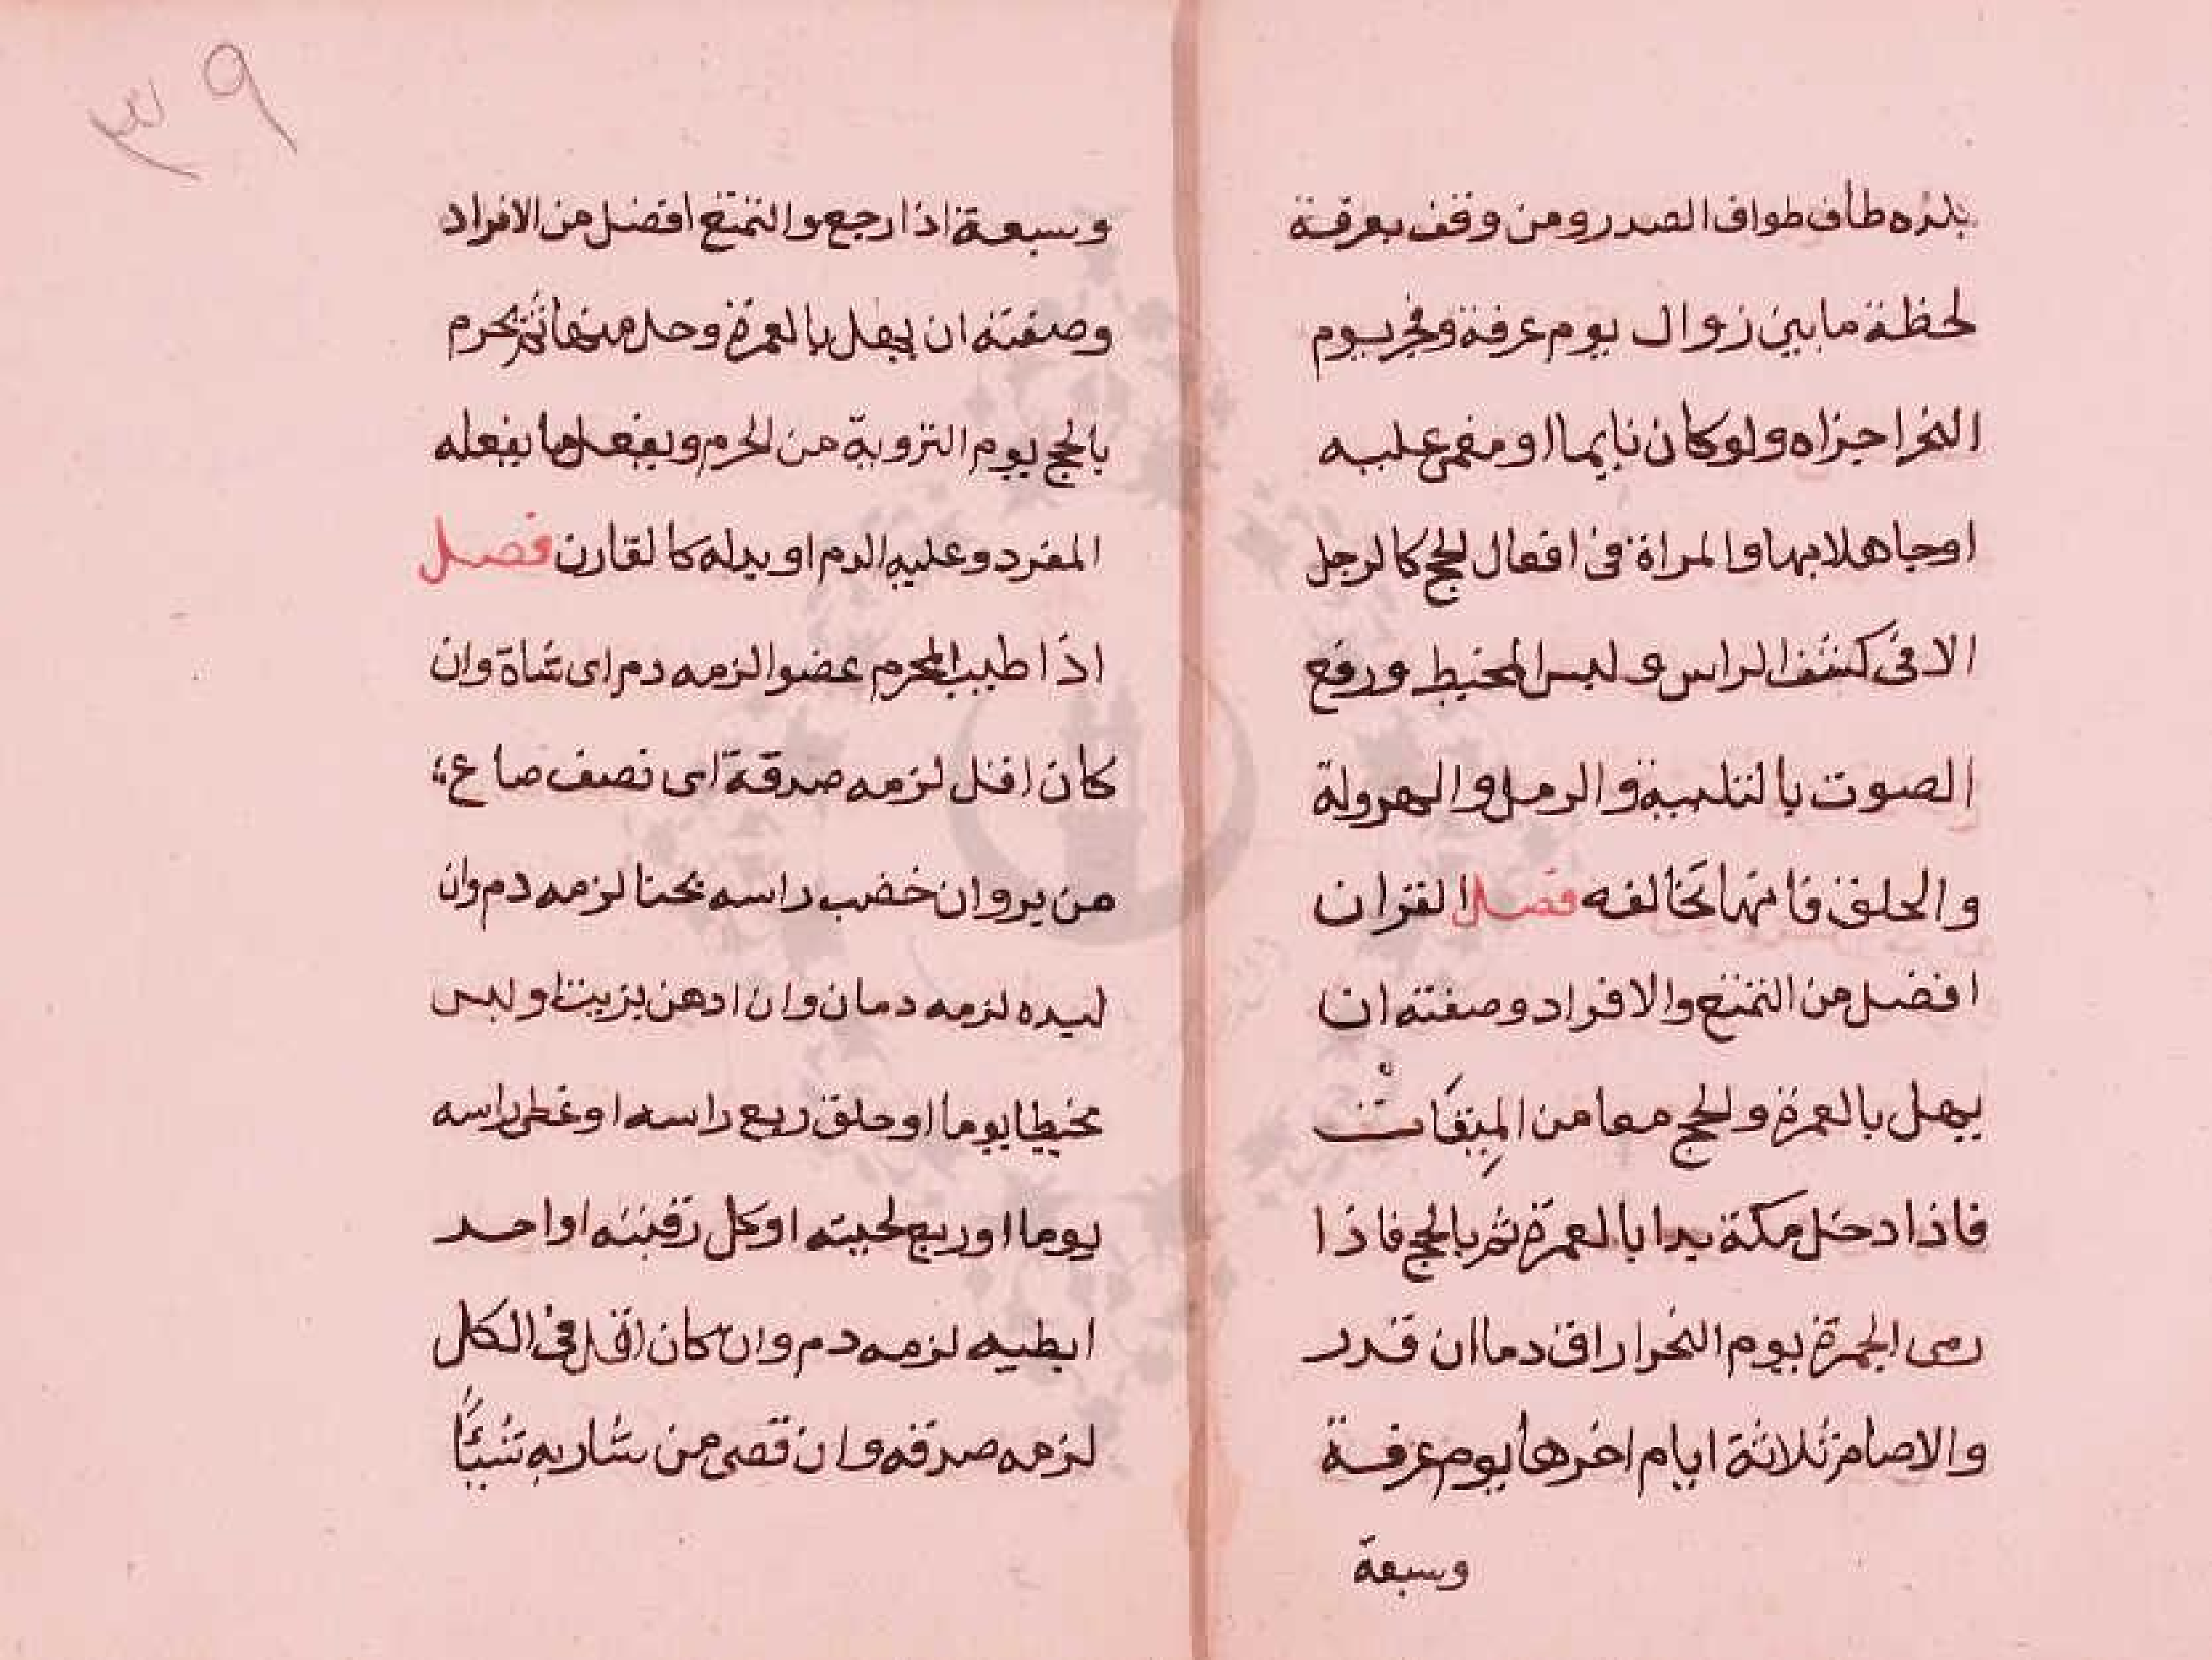 بلده طاف طواف الصدر ومن وقف بعرفة
لحظة ما بين زوال يوم عرفة وفجر يوم
النحر اجزاه ولو كان نايما او مغمى عليه
او جاهلا بها والمراة في افعال الحج كالرجل
الا في كشف الراس ولبس المخيط ورفع
الصوت بالتلبية والرمل والهرولة
والحلق فانها تخالفه فصل القران
افضل من التمتع والافراد وصفته ان
يهل بالعمرة والحج معا من المِيقَاتْ
فاذا دخل مكة بدا بالعمرة ثم بالحج فاذا
رمى الجمرة يوم النحر اراق دما ان قدر
والا صام ثلاثة ايام اخرها يوم عرفة
وسبعة
٣٩
وسبعة اذا رجع والتمتع افضل من الافراد
وصفته ان يهل بالعمرة وحل منها ثم يحرم
بالحج يوم التروية من الحرم ويفعل ما يفعله
المفرد وعليه الدم او بدله كالقارن فصل
اذا طيب المحرم عضوا لزمه دم اى شاة وان
كان اقل لزمه صدقة اى نصف صاع
من بر وان خضب راسه بحنا لزمه دم وان
لبده لزمه دمان وان ادهن بزيت او لبس
مخيطا يوما او حلق ربع راسه او غطى راسه
يوما او ربع لحيته او كل رقبته او احد
ابطيه لزمه دم وان كان اقل في الكل
لزمه صدقه وان قص من شاربه شيئًا